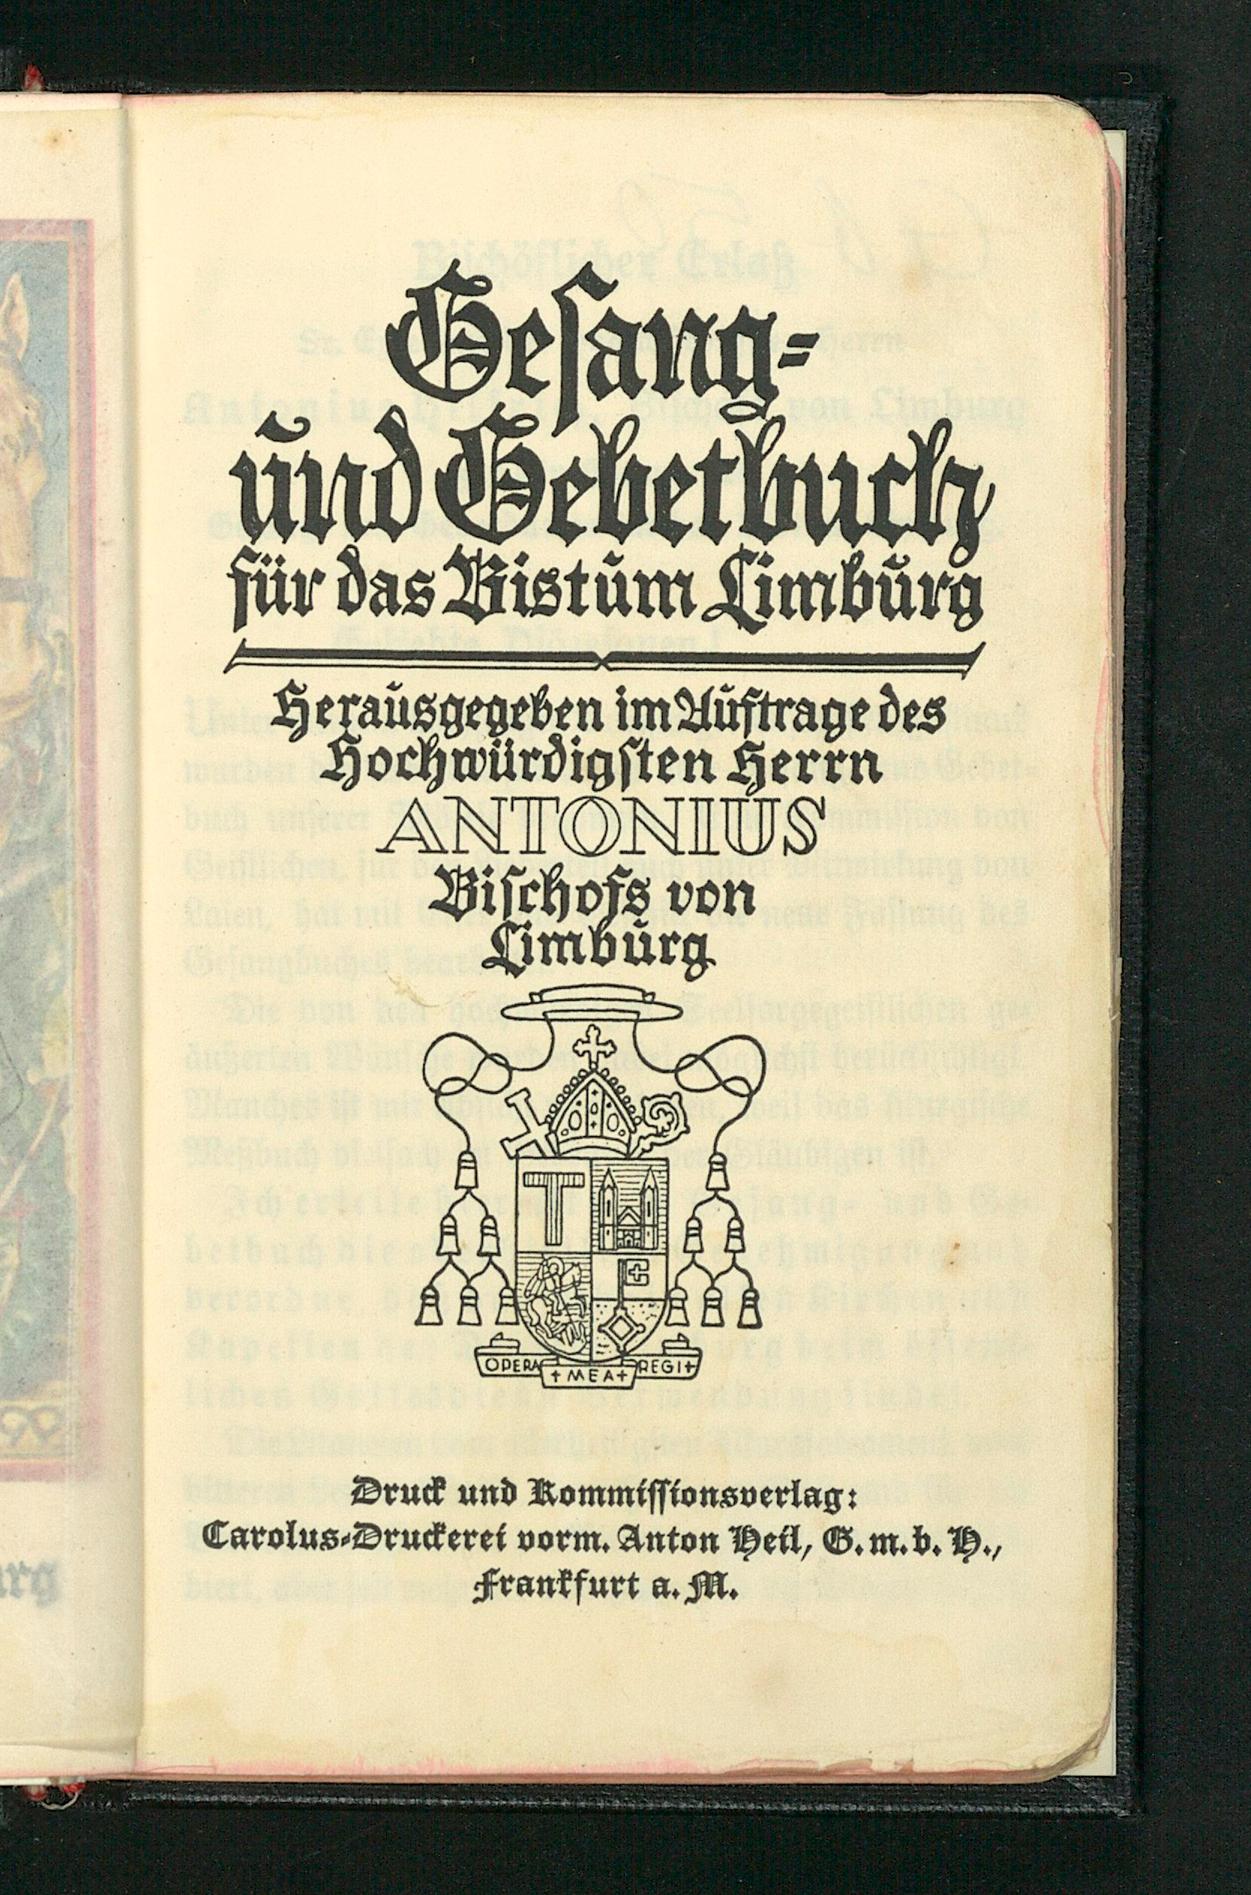 Gesang-
und Gebetbuch
für das Bistum Limburg
Herausgegeben im Auftrage des
Hochwürdigsten Herrn
ANTONIUS
Bischofs von
Limburg
OPERA + MEA + REGI +
Druck und Kommissionsverlag:
Carolus-Druckerei vorm. Anton Heil, G. m. b. H.,
Frankfurt a. M.